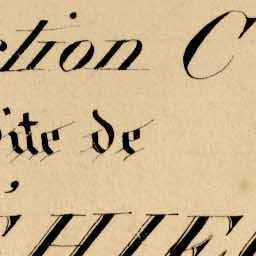 ction C
ite de
HIE